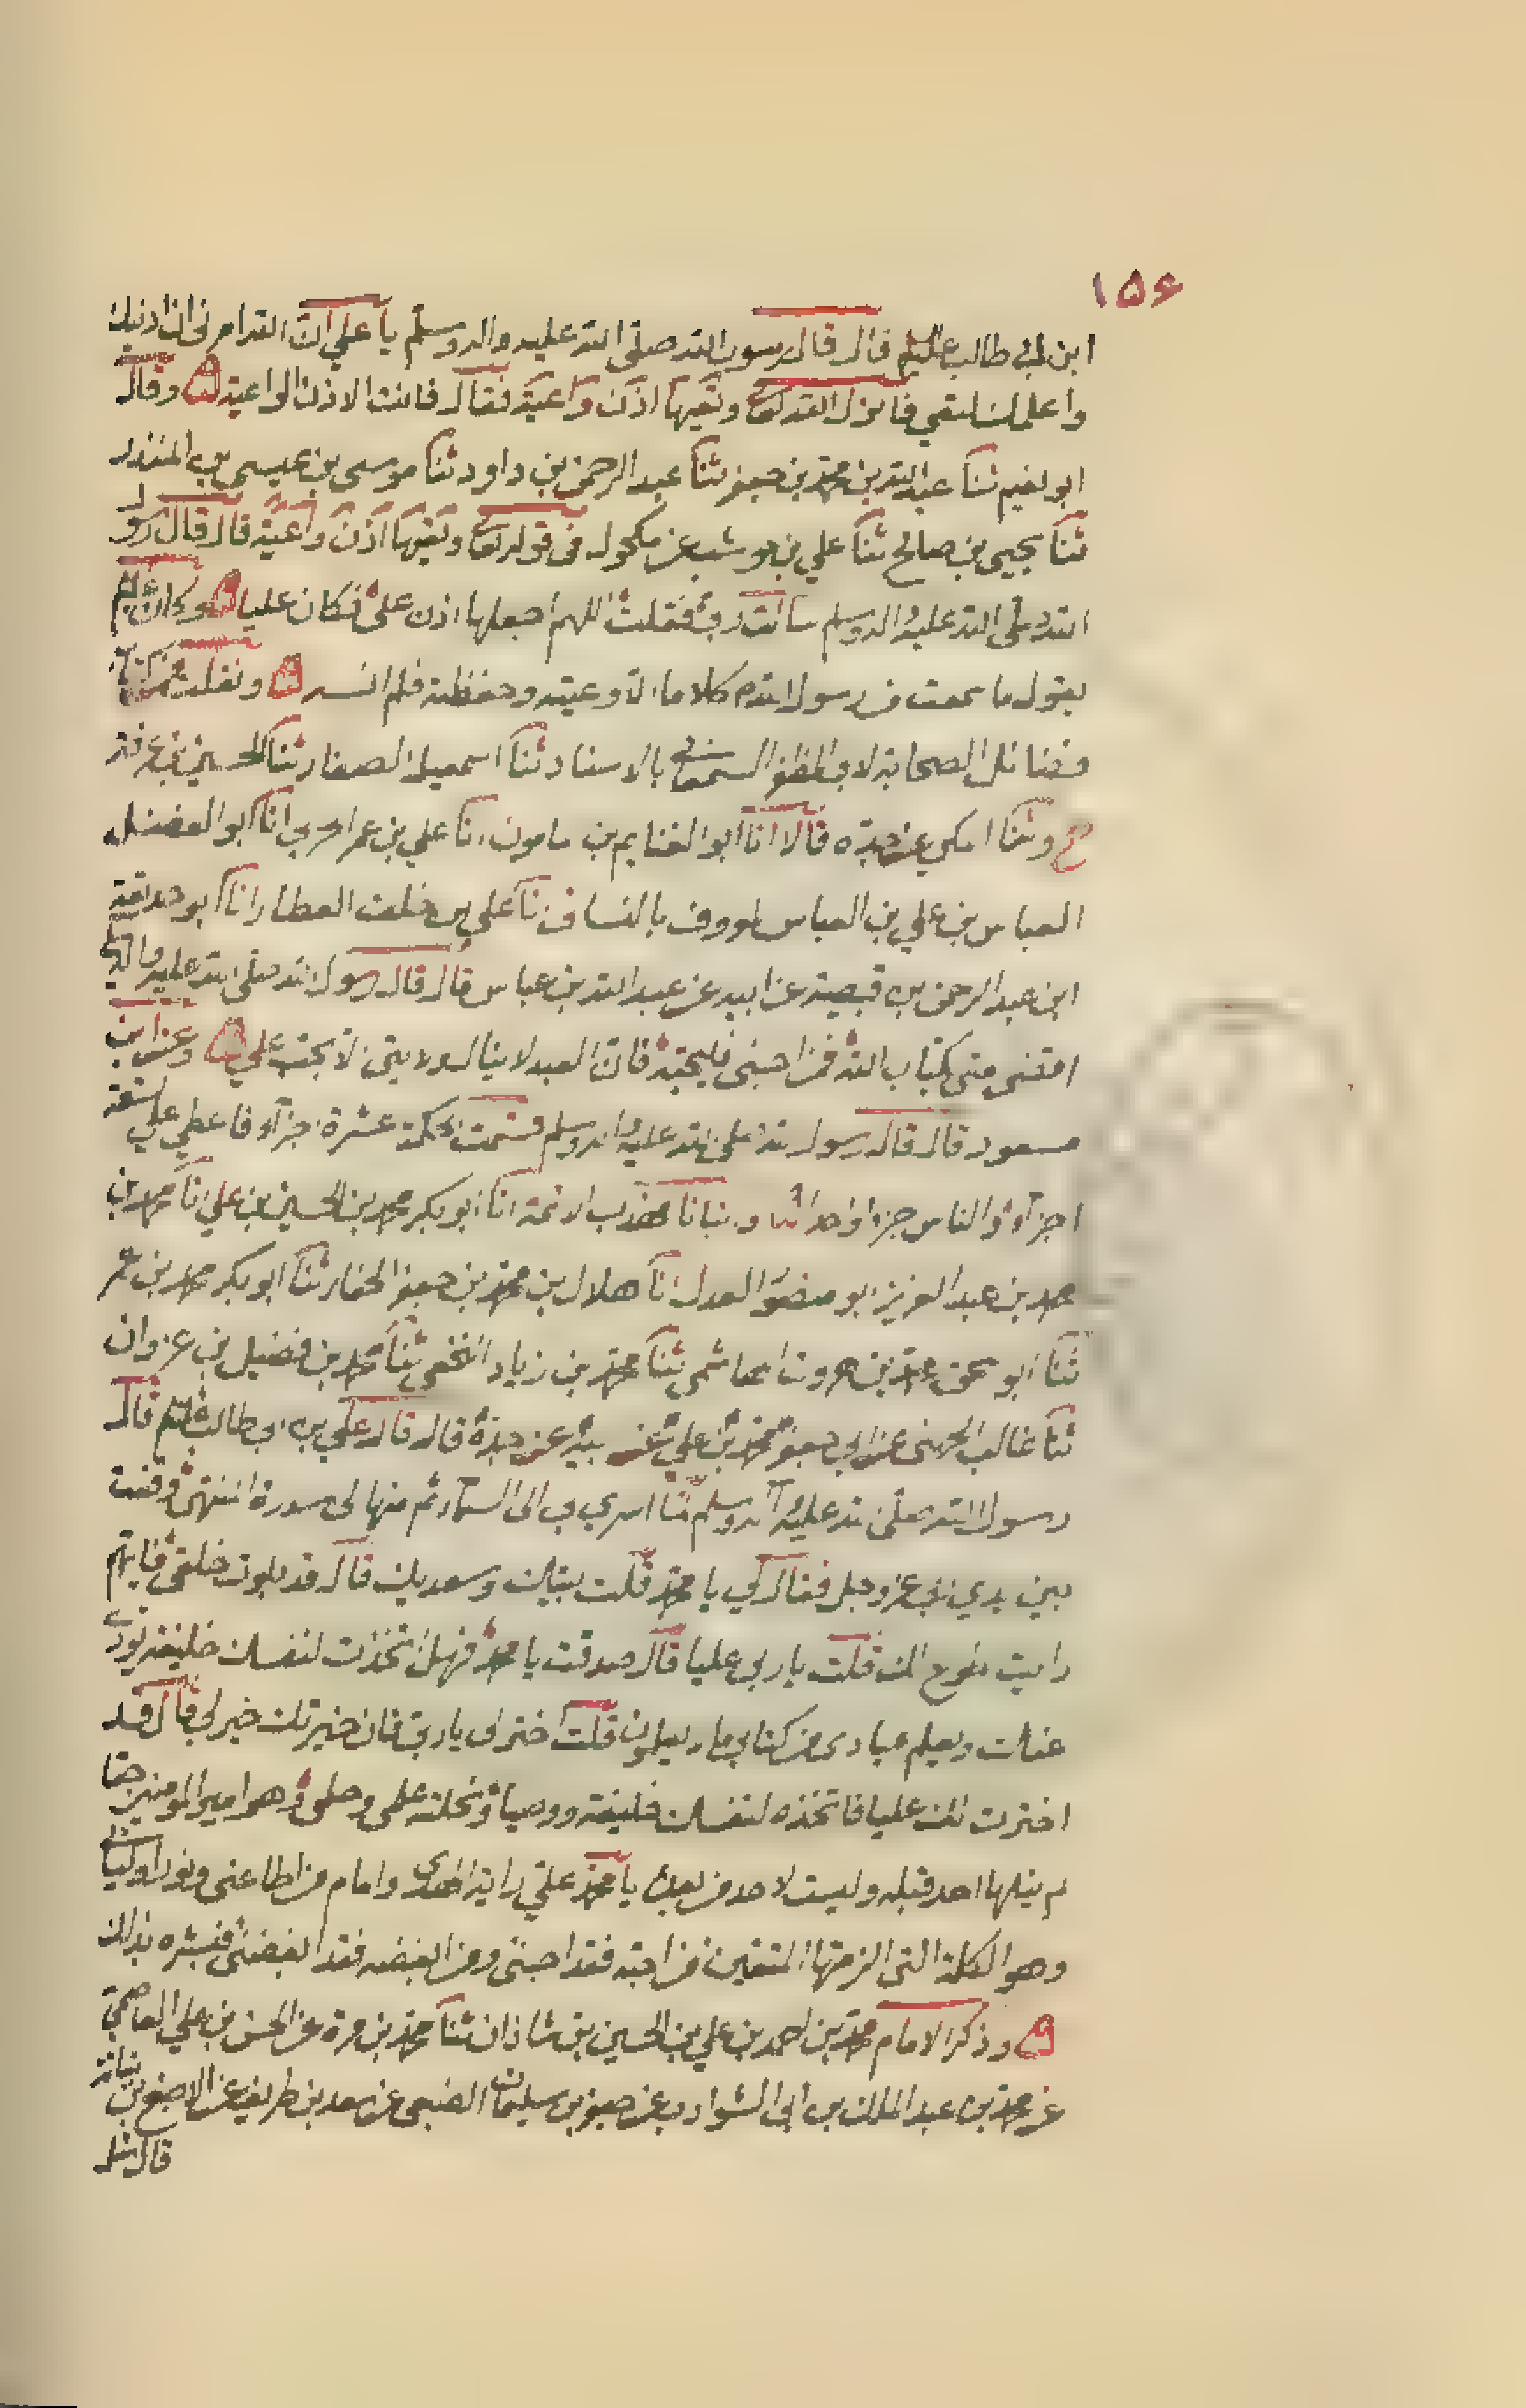 ١٥٤
ابن ابي طالب عليهم قال قال رسول الله صلى الله عليه واله وسلم يا علي ان الله امرني ان ادنيك
واعلمك لتعي فانزل الله تعا وتعيها اذن واعية فقال فانت الاذن الواعية وقال
ابو نعيم ثنا عبد الله بن محمد بن جعفر ثنا عبد الرحمن بن داود ثنا موسى بن عيسى بن المنذر
ثنا يحيى بن صالح ثنا علي بن حوشب عن مكحول في قوله تعا وتعيها اذن واعية قال قال رسول
الله صلى الله عليه واله وسلم سالت ربي فقلت اللهم اجعلها اذن علي فكان علي وكان علي
يقول ما سمعت من رسول الله كلاما الا وعيته وحفظته فلم انسه ونقلت من كتاب
فضائل الصحابة لابي المظفر السمعاني بالاسناد ثنا اسمعيل الصفار ثنا الحسين بن عرفة
ح وثنا المكي عن جده قالا انا ابو الغنايم بن مامون انا علي بن عمر الحربي انا ابو الفضل
العباس بن علي بن العباس المعروف بالنسائي نا علي بن خلف العطار انا ابو حذيفة
ابن عبد الرحمن بن قبيصة عن ابيه عن عبد الله بن عباس قال قال رسول الله صلى الله عليه واله
اقضى متى كتاب الله فمن احبني فليحبه فان العبد لا ينال ولايتي الا بحب علي وعن ابن
مسعود قال قال رسول الله صلى الله عليه واله وسلم قسمت الحكمة عشرة اجزآء فاعطي علي تسعة
اجزآء والناس جزءا واحدا وانبانا مهذب الائمة انا ابو بكر محمد بن الحسين بن علي انا محمد بن
محمد بن عبد العزيز ابو منصور العدل انا هلال بن محمد بن جعفر الحفار ثنا ابو بكر محمد بن عمر
ثنا ابو اسحق محمد بن هرون الهاشمي ثنا محمد بن زياد النخعي ثنا محمد بن فضيل بن غزوان
ثنا غالب الجهني عن ابي جعفر محمد بن علي عن ابيه عن جده قال قال علي بن ابي طالب قال
رسول الله صلى الله عليه اله وسلم لما اسري بي الى السمآء ثم منها الى سدرة المنتهى وقفت
بين يدي ربي عز وجل فقال لي يا محمد قلت لبيك وسعديك قال قد بلوت خلقي فايهم
رايت اطوع لك قلت يا ربي عليا قال صدقت يا محمد فهل اتخذت لنفسك خليفة يؤدي
عنك ويعلم عبادي من كتابي ما لا يعلمون قلت اختر لي يا رب فان خيرتك خير لي قال قد
اخترت لك عليا فاتخذه لنفسك خليفة ووصيا ونحلته علمي وحلمي وهو امير المومنين حقا
لم ينلها احد قبله وليست لاحد من بعده يا محمد علي راية الهدى وامام من اطاعني ونور اوليائي
وهو الكلمة التي الزمتها المتقين من احبه فقد احبني ومن ابغضه فقد ابغضني فبشره بذلك
وذكر الامام محمد بن احمد بن علي بن الحسين بن شاذان ثنا محمد بن مرة عن الحسن بن علي العاصمي
عن محمد بن عبد الملك بن ابي الشوارب عن جعفر بن سليمان الضبعي عن سعد بن طريف عن الاصبغ بن نباتة
قال سئل